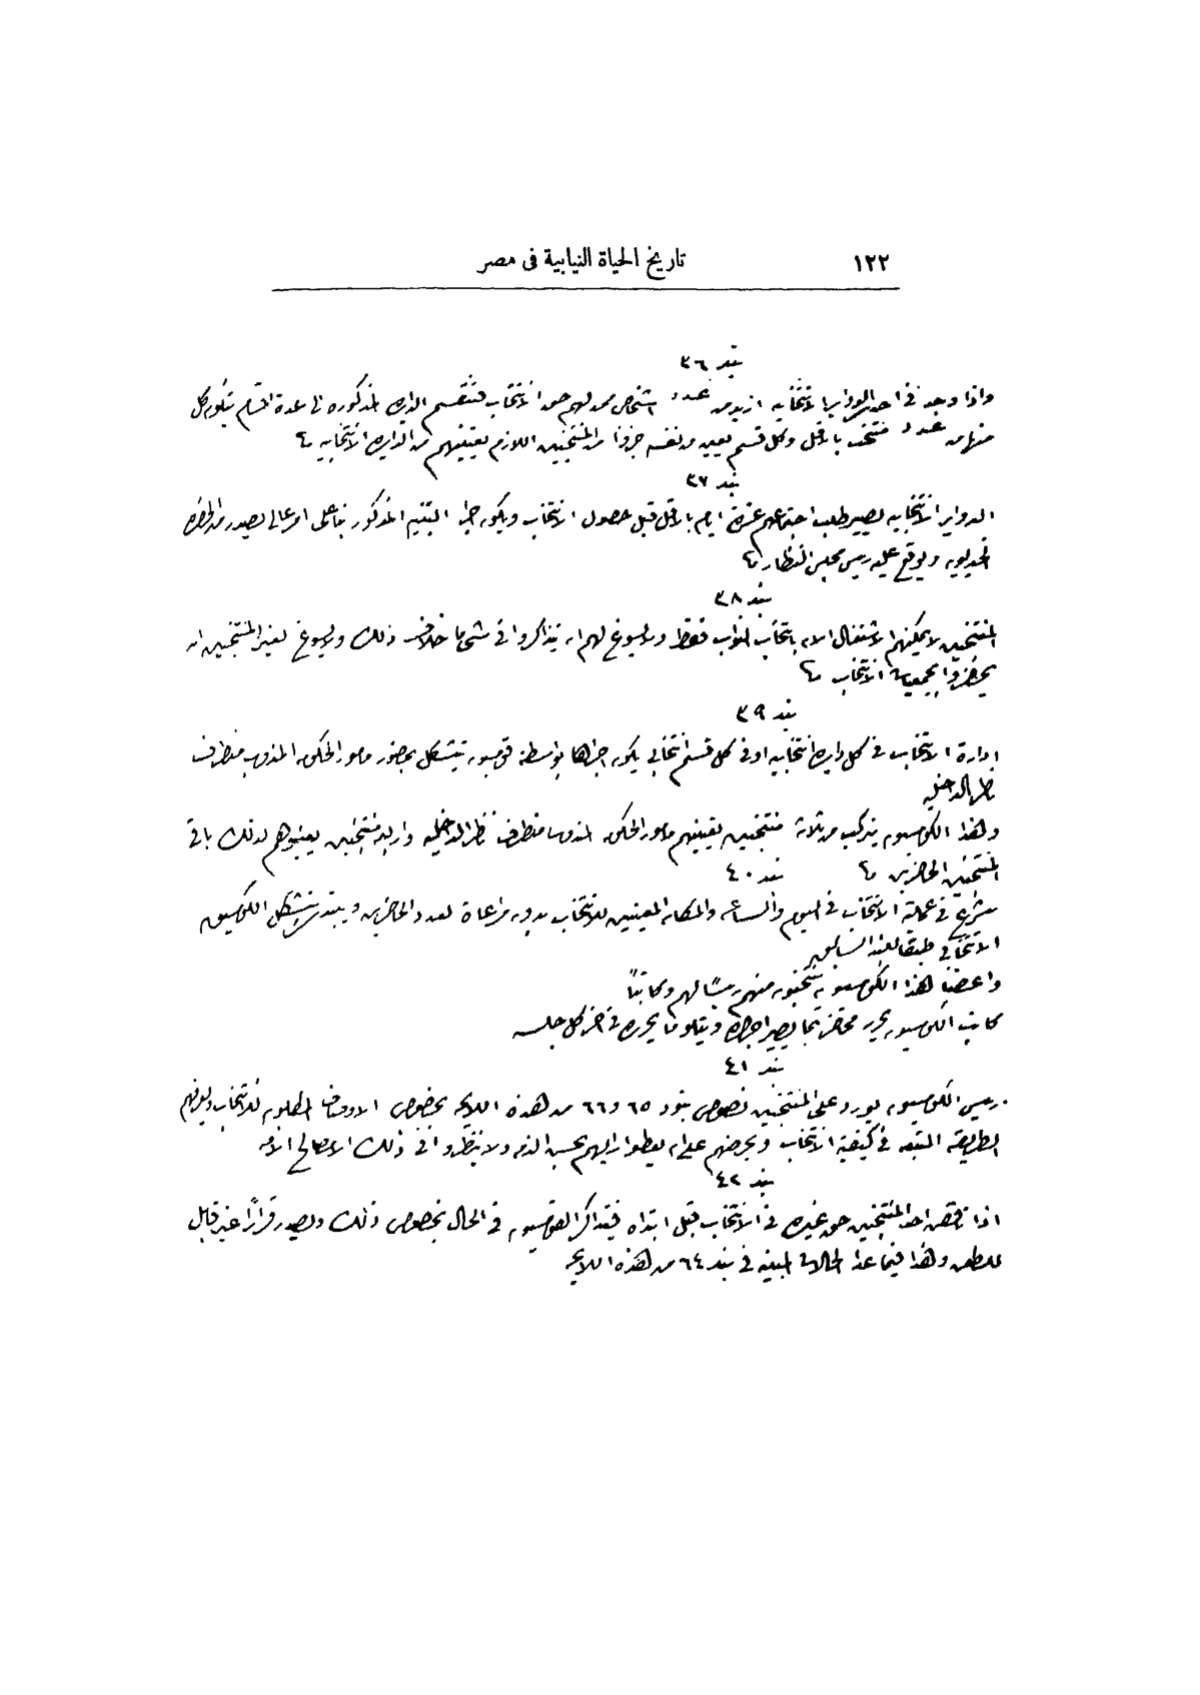 ١٢٢ تاريخ الحياة النيابية فى مصر
بند ٣٦
واذا وجد في احد الدواير الانتخابيه ازيد من عدد اشخاص ممن لهم حق الانتخاب فتنقسم الدايره المذكوره الى عدة اقسام يكون كل
منها من عدد منتخب بالاقل وكل قسم يعين من نفسه جزوا من المنتخبين اللازم تعيينهم من الدايره الانتخابيه
بند ٣٧
الدواير الانتخابيه يصير طلب اجتماعهم عشرة ايام بالاقل قبل حصول الانتخاب ويكون اجرا التقسيم المذكور بناء على امر عالى يصدر من الحضره
الخديويه ويوقع عليه رييس مجلس النظار
بند ٣٨
المنتخبين لا يمكنهم الاشتغال الا بانتخاب النواب فقط ولا يسوغ لهم ان يتذاكروا في شى ما خلاف ذلك ولا يسوغ لغير المنتخبين ان
يحضروا بجمعيات الانتخاب
بند ٣٩
ادارة الانتخاب في كل دايره انتخابيه او في كل قسم انتخابي يكون اجراها بواسطة قومسيون يتشكل بحضور مامور الحكومه المندوب من طرف
نظر الداخليه
وهذا الكومسيون يتركب من ثلاثة منتخبين يعينهم مامور الحكومه المندوب من طرف نظر الداخليه واربعة منتخبين يعينوهم لذلك باقي
المنتخبين الحاضرين
بند ٤٠
يشرع في عملية الانتخاب في اليوم والساعه والمكان المعينين للانتخاب بدون مراعاة لعدد الحاضرين ويبتدى بتشكيل الكومسيون
الانتخابي طبقا للبند السابق
واعضا هذا الكومسيون ينتخبون منهم رييسًا لهم وكاتبًا
كاتب الكومسيون يحرر محضر بما يصير اجراه ويتلو ما يحرره في اخر كل جلسه
بند ٤١
رييس الكومسيون يورد على المنتخبين نصوص بنود ٦٥ و ٦٦ من هذه اللايحه بخصوص الاوصاف المطلوبه للانتخاب ويعرفهم
الطريقه المتبعه في كيفية الانتخاب ويحرضهم على ان يعطوا رايهم بحسب الذمه ولا ينظروا في ذلك الا لصالح الامه
بند ٤٢
اذا نقض احد المنتخبين حق غيره في الانتخاب قبل ابتداه فيتذاكر القومسيون في الحال بخصوص ذلك ويصدر قرارًا غير قابل
للطعن وهذا فيما عدا الحالات المبينه في بند ٦٤ من هذه اللايحه